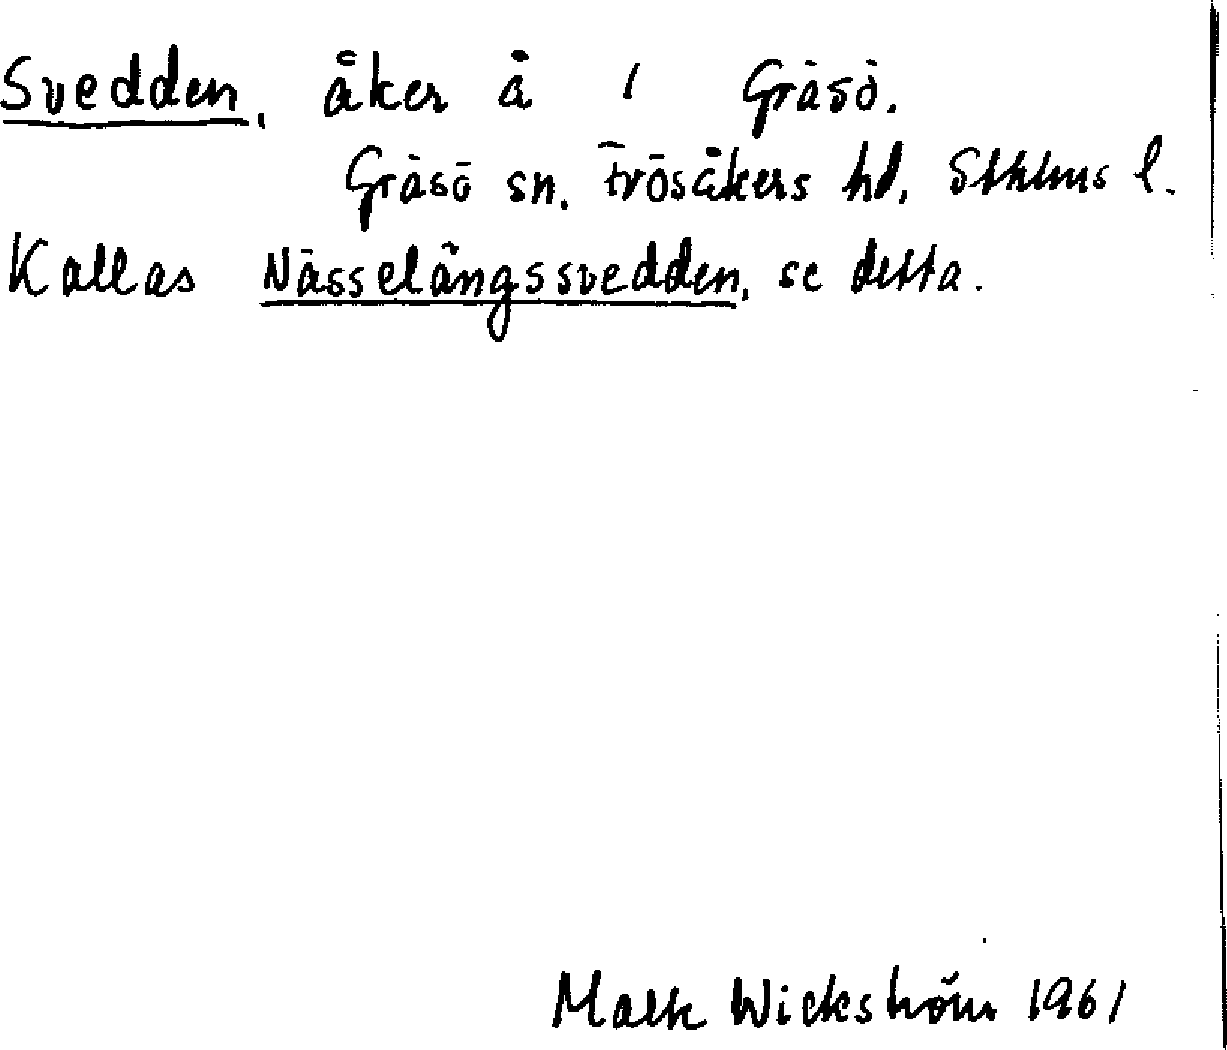 Svedden, åker å 1 Gräsö.
Gräsö sn. Frösåkers hd, Sthlms l.
Kallas Nässelängssvedden, se detta.
Wickström 1961